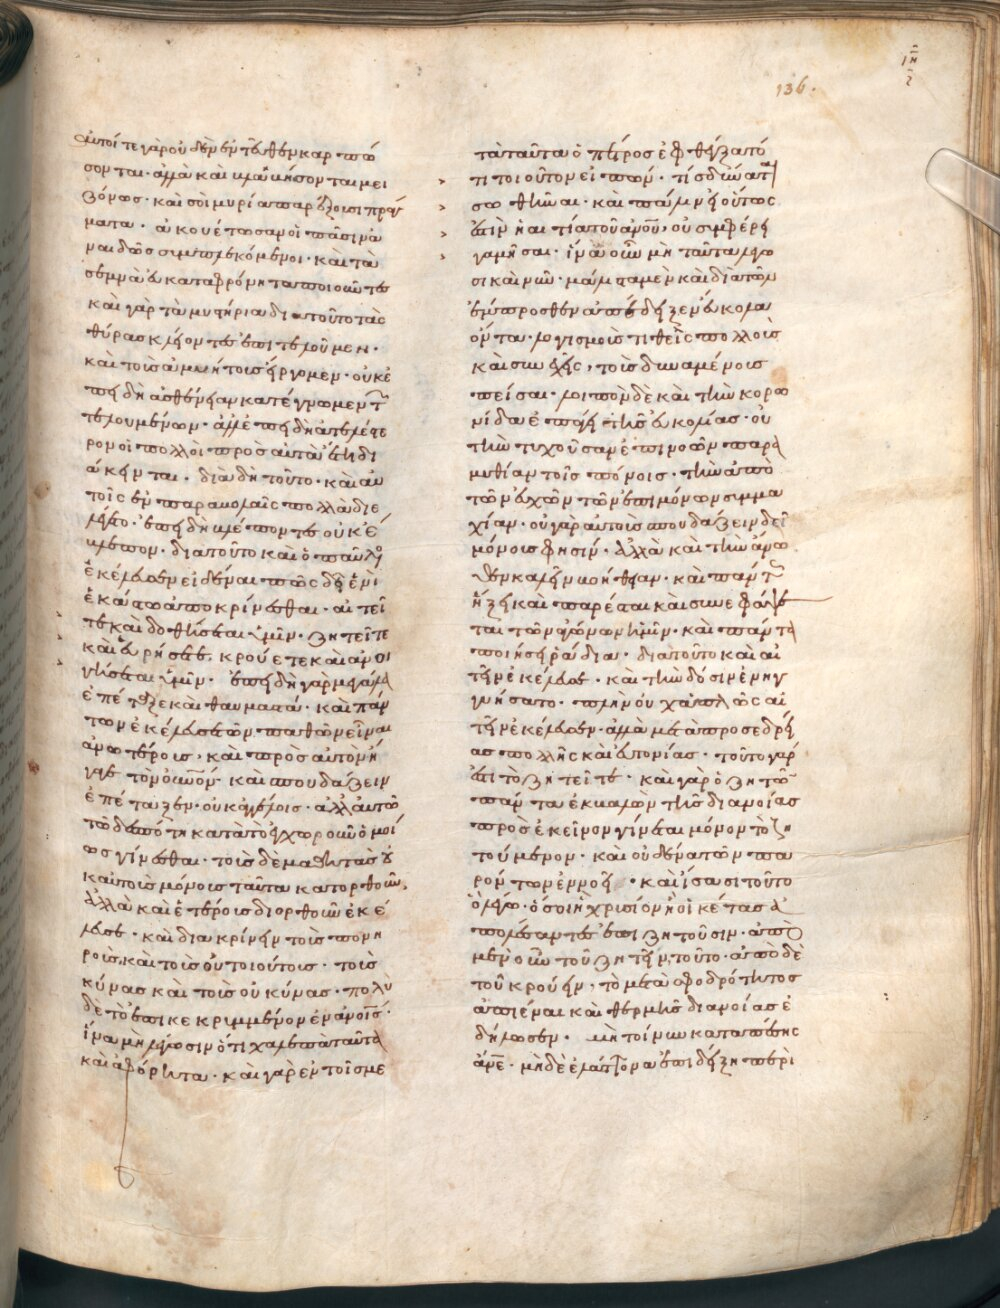 136.
αὐτοί τε γὰρ οὐδὲν ἐντεῦθεν καρπώ
σονται· ἀλλὰ καὶ λυμανοῦνται μει
ζόνως· καὶ σοὶ μυρία παρέξουσι πράγ
ματα· ἀκουέτωσαν οἱ πᾶσιν ἀ
ναιδῶς συμπλεκόμενοι· καὶ τὰ
σεμνὰ εὐκαταφρόνητα ποιοῦντες
καὶ γὰρ τὰ μυστήρια διὰ τοῦτο τὰς
θύρας κλείοντες ἐπιτελοῦμεν·
καὶ τοὺς ἀμυήτους εἴργομεν· οὐκ ἐ
πειδὴ ἀσθένειαν κατέγνωμεν τῶν
τελουμένων· ἀλλ' ἐπειδὴ ἀτελέστε
ρον οἱ πολλοὶ πρὸς αὐτὰ ἔτι δι
άκεινται· διὰ δὴ τοῦτο· καὶ αὐ
τὸς ἐν παραβολαῖς πολλὰ διε
λέγετο· ἐπειδὴ βλέποντες οὐκ ἔ
βλεπον· διὰ τοῦτο καὶ ὁ παῦλος
ἐκέλευσεν εἰδέναι πῶς δεῖ ἑνὶ
ἑκάστω ἀποκρίνεσθαι· αἰτεῖ
τε καὶ δοθήσεται ὑμῖν· ζητεῖτε
καὶ εὑρήσετε· κρούετε καὶ ἀνοι
γήσεται ὑμῖν· ἐπειδὴ γὰρ μεγάλα
ἐπέταξε καὶ θαυμαστά· καὶ πάν
των ἐκέλευσε τῶν παθῶν εἶναι
ἀνωτέρους, καὶ πρὸς αὐτὸν ἤ
γαγε τὸν οὐνὸν· καὶ σπουδάζειν
ἐπέταξεν· οὐκ ἀγγέλοις· ἀλλ' αὐτῶ
τῶ δεσπότη κατὰ τὸ ἐγχωροῦν ὁμοί
ους γίνεσθαι· τοὺς δὲ μαθητὰς οὐ
κ αὐτοὺς μόνους ταῦτα κατορθοῦν,
ἀλλὰ καὶ ἑτέρους διορθοῦν ἐκέ
λευσε· καὶ διακρίνειν τοὺς πονη
ροὺς, καὶ τοὺς οὐ τοιούτους· τοὺς
κύνας καὶ τοὺς οὐ κύνας· πολὺ
δὲ τὸ ἐπικεκρυμμένον ἐν ἀνοις·
ἵνα μὴ λέγωσιν ὅτι χαλεπὰ ταῦτα
καὶ ἀφόρητα· καὶ γὰρ ἐν τοῖς με
τὰ ταῦτα ὁ πέτρος ἐφθέγξατό
τι τοιοῦτον εἰπών· τίς δύναται
σωθῆναι· καὶ πάλιν εἰ οὕτως
ἐστὶν ἡ αἰτία τοῦ ἀνου, οὐ συμφέρει
γαμῆσαι· ἵνα οὖν μὴ ταῦτα λέγω
σι καὶ νῦν· μάλιστα μὲν καὶ διὰ τῶν
ἔμπροσθεν ἀπέδειξεν εὔκολα
ὄντα· λογισμοὺς τιθεὶς πολλοὺς
καὶ συνεχεῖς, τοὺς δυναμένους
πεῖσαι· λοιπὸν δὲ καὶ τὴν κορω
νίδα ἐπάγει τῆς εὐκολίας· οὐ
τὴν τυχοῦσαν ἐπινοῶν παρα
μυθίαν τοῖς πόνοις· τὴν ἀπὸ
τῶν εὐχῶν τῶν ἐπιμόνων συμμα
χίαν· οὐ γὰρ αὐτοὺς σπουδάζειν δεῖ
μόνους φησίν· ἀλλὰ καὶ τὴν ἄνω
θεν καλεῖν βοήθειαν· καὶ πάντως
ἥξει καὶ παρέσται καὶ συνεφάψε
ται τῶν ἀγώνων ἡμῖν· καὶ πάντα
ποιήσει ῥάδια· διὰ τοῦτο καὶ αἰ
τεῖν ἐκέλευσε· καὶ τὴν δόσιν ἐνηγ
γυήσατο· πλὴν οὐχ ἁπλῶς αἰ
τεῖν ἐκέλευσεν· ἀλλὰ μετὰ προσεδρεί
ας πολλῆς καὶ εὐτονίας· τοῦτο γάρ
ἐστι τὸ ζητεῖτε· καὶ γὰρ ὁ ζητῶν
πάντα ἐκβαλὼν τῆς διανοίας
πρὸς ἐκεῖνον γίνεται μόνον τὸ ζη
τούμενον· καὶ οὐδὲν τῶν πα
ρόντων ἐννοεῖ· καὶ ἴσασι τοῦτο
ὃ λέγω· ὅσοι ἢ χρυσίον ἢ οἰκέτας ἀ
πολέσαντες ἐπιζητοῦσιν· ἀπὸ
μὲν οὖν τοῦ ζητεῖν, τοῦτο· ἀπὸ δὲ
τοῦ κρούειν, τὸ μετὰ σφοδρότητος
προσιέναι καὶ θερμῆς διανοίας ἐ
δήλωσεν· μὴ τοίνυν καταπέσης
ἄνε· μηδὲ ἐλάττονα ἐπιδείξη περὶ